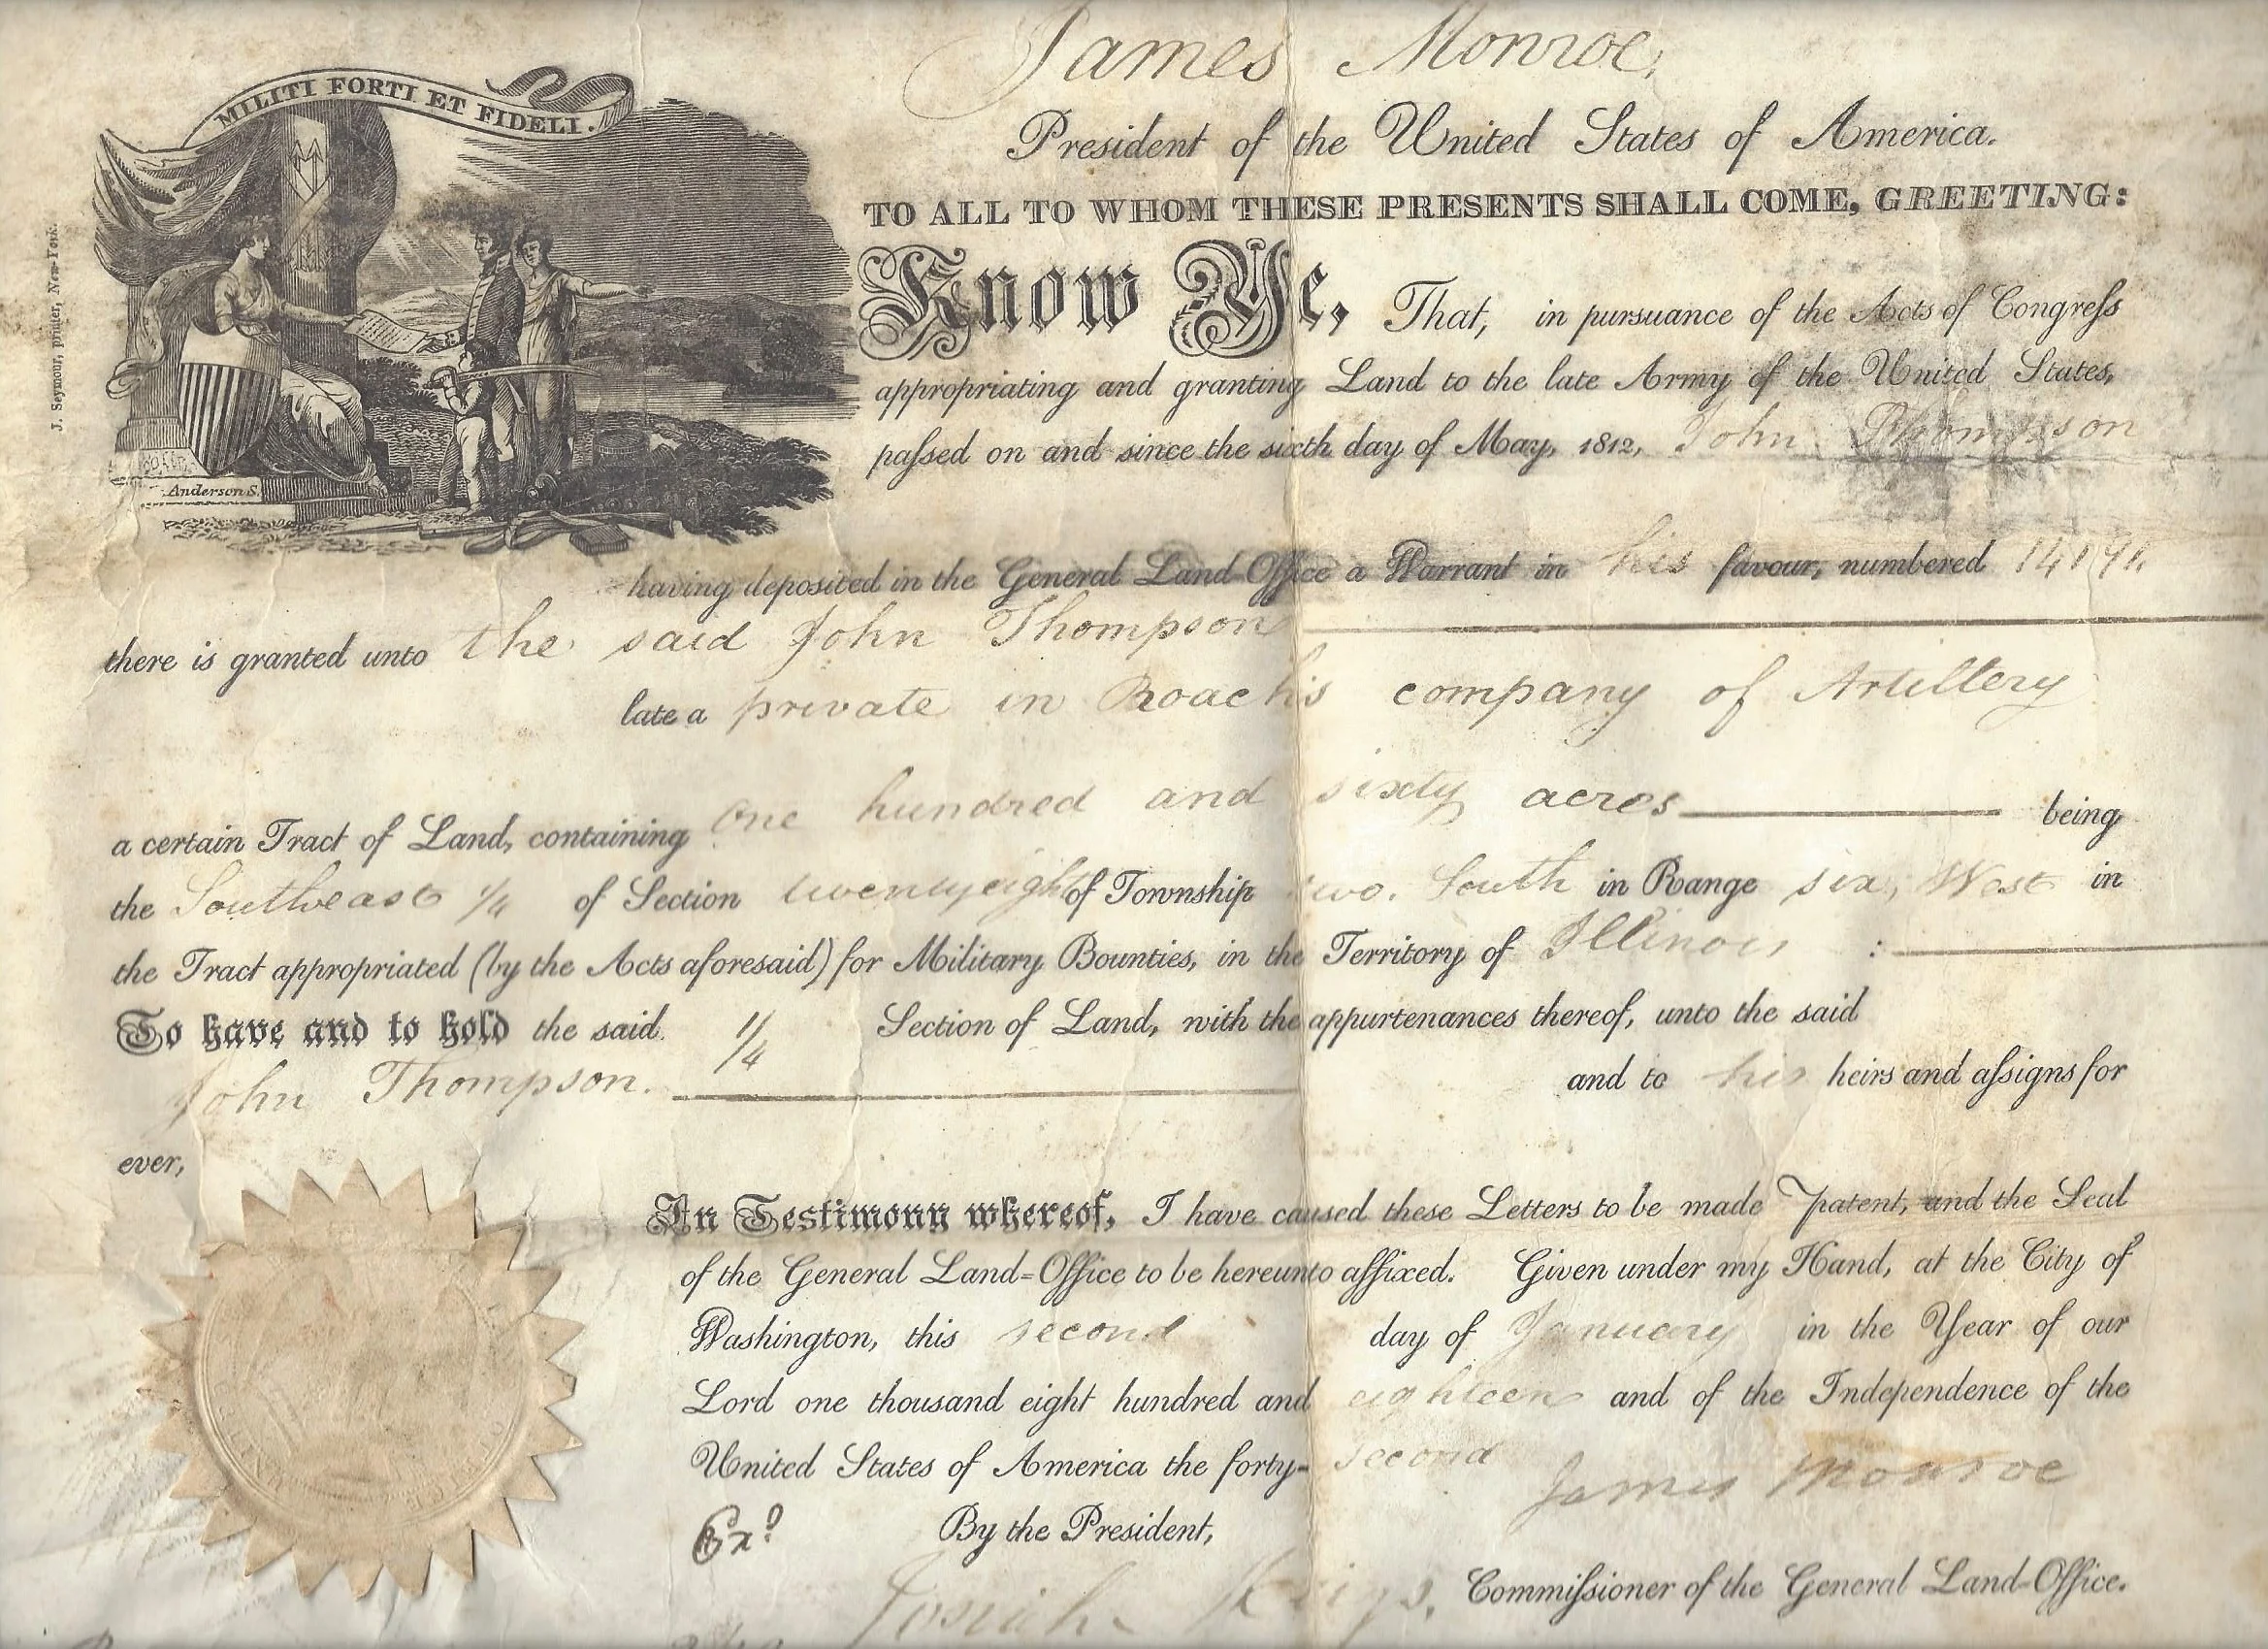 James Monroe,
President of the United States of America.
MILITI FORTI ET FIDELI.
TO ALL TO WHOM THESE PRESENTS SHALL COME, GREETING:
Know Ye, That, in pursuance of the Acts of Congreſs
appropriating and granting Land to the late Army of the United States,
paſsed on and since the sixth day of May, 1812, John Thompson
J. Seymour, printer, New-York.
Anderson S.
having deposited in the General Land-Office a Warrant in his favour, numbered
there is granted unto the said John Thompson
late a private in Roach's company of Artillery
a certain Tract of Land, containing One hundred and sixty acres being
the Southeast 1/4 of Section twentyeight of Township two. South in Range six, West in
the Tract appropriated (by the Acts aforesaid) for Military Bounties, in the Territory of Illinois :
To have and to hold the said 1/4 Section of Land, with the appurtenances thereof, unto the said
John Thompson. and to his heirs and aſsigns for
ever,
In Testimony whereof, I have caused these Letters to be made patent, and the Seal
of the General Land-Office to be hereunto affixed. Given under my Hand, at the City of
Washington, this second day of January in the Year of our
Lord one thousand eight hundred and eighteen and of the Independence of the
United States of America the forty-second
James Monroe
Exd By the President,
Josiah Meigs, Commiſsioner of the General Land-Office.